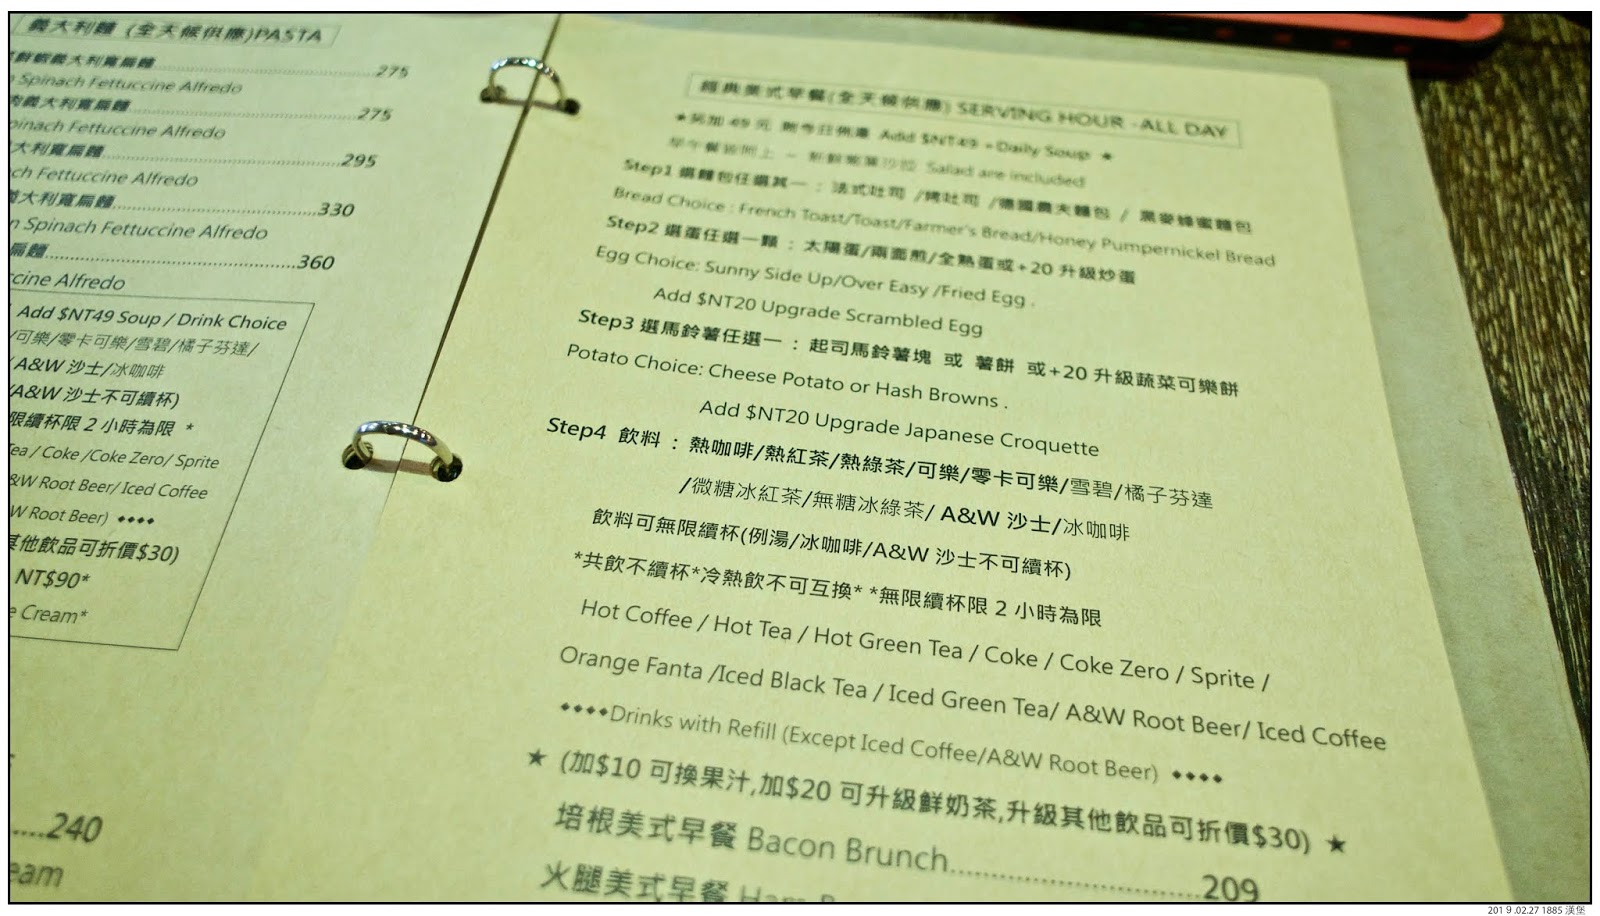 義大利麵 (全天候供應)PASTA
鮮蝦義大利寬扁麵 275
Spinach Fettuccine Alfredo
義大利寬扁麵 275
Spinach Fettuccine Alfredo
大利寬扁麵 295
ch Fettuccine Alfredo
義大利寬扁麵 330
n Spinach Fettuccine Alfredo
扁麵 360
ccine Alfredo
Add $NT49 Soup / Drink Choice
/可樂/零卡可樂/雪碧/橘子芬達/
/A&W 沙士/冰咖啡
/A&W 沙士不可續杯)
限續杯限 2 小時為限 *
Tea / Coke /Coke Zero/ Sprite
&W Root Beer/ Iced Coffee
W Root Beer) ◆◆◆◆
其他飲品可折價$30)
NT$90*
e Cream*
....240
eam
經典美式早餐(全天候供應) SERVING HOUR -ALL DAY
★另加 49 元 附今日例湯 Add $NT49 =Daily Soup ★
Salad are included
Step1 選麵包任選其一 : 法式吐司 /烤吐司 /德國農夫麵包 / 黑麥蜂蜜麵包
Bread Choice : French Toast/Toast/Farmer's Bread/Honey Pumpernickel Bread
Step2 選蛋任選一顆 : 太陽蛋/兩面煎/全熟蛋或+20 升級炒蛋
Egg Choice: Sunny Side Up/Over Easy /Fried Egg .
Add $NT20 Upgrade Scrambled Egg
Step3 選馬鈴薯任選一 : 起司馬鈴薯塊 或 薯餅 或+20 升級蔬菜可樂餅
Potato Choice: Cheese Potato or Hash Browns .
Add $NT20 Upgrade Japanese Croquette
Step4 飲料 : 熱咖啡/熱紅茶/熱綠茶/可樂/零卡可樂/雪碧/橘子芬達
/微糖冰紅茶/無糖冰綠茶/ A&W 沙士/冰咖啡
飲料可無限續杯(例湯/冰咖啡/A&W 沙士不可續杯)
*共飲不續杯*冷熱飲不可互換* *無限續杯限 2 小時為限
Hot Coffee / Hot Tea / Hot Green Tea / Coke / Coke Zero / Sprite /
Orange Fanta /Iced Black Tea / Iced Green Tea/ A&W Root Beer/ Iced Coffee
◆◆◆◆Drinks with Refill (Except Iced Coffee/A&W Root Beer) ◆◆◆◆
★ (加$10 可換果汁,加$20 可升級鮮奶茶,升級其他飲品可折價$30) ★
培根美式早餐 Bacon Brunch 209
火腿美式早餐 Ham
2019.02.27 1885 漢堡